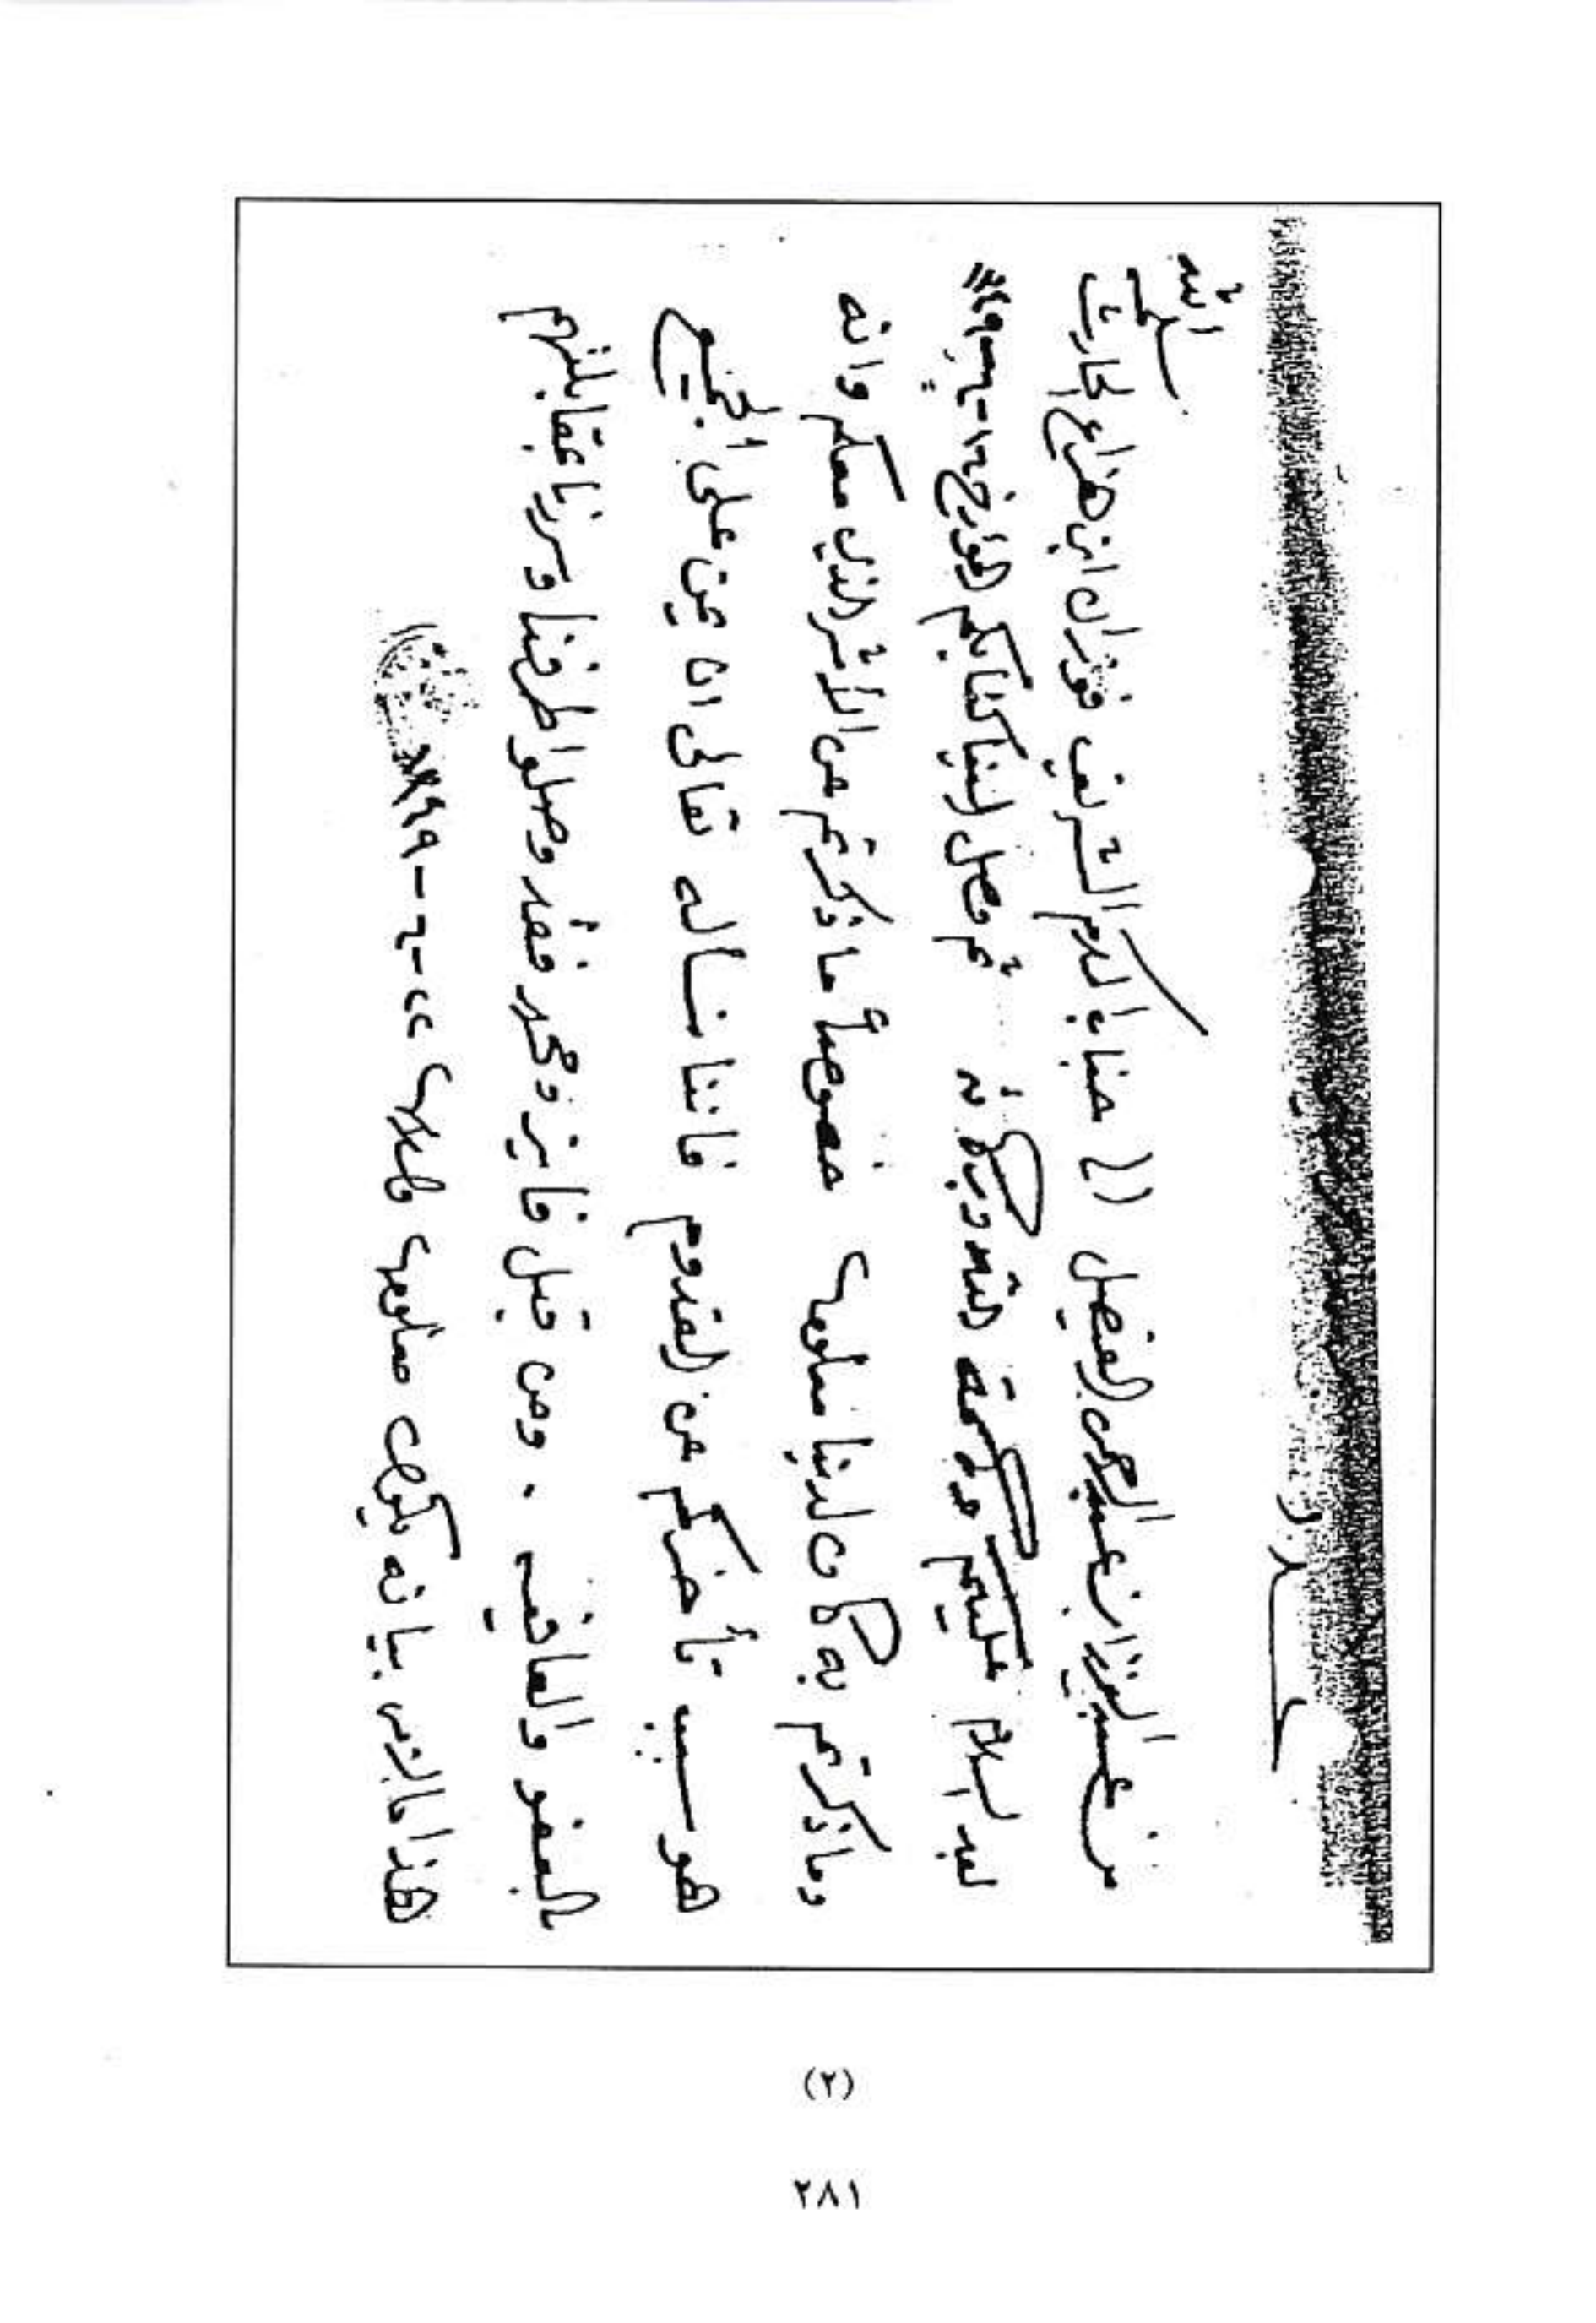 من عبد العزيز ابن عبد الرحمن الفيصل الى جناب المكرم الشريف فوزان ابن هزاع الحارث سلمه الله
بعد السلام عليكم ورحمة الله وبركاته ثم وصل الينا كتابكم المؤرخ
وما ذكرتم به كان لدينا معلوما خصوصاً ما ذكرتم من الأثر الذي معكم وانه
هو سبب تأخركم من القدوم فاننا نساله تعالى ان يمن على الجميع
بالعفو والعافيه . ومن قبل فايز ومحمد فقد وصلوا طرفنا وسرنا
هذا ما لزم بيانه ليكون معلوما والسلام ٢٢-٦-
(٢)
٢٨١